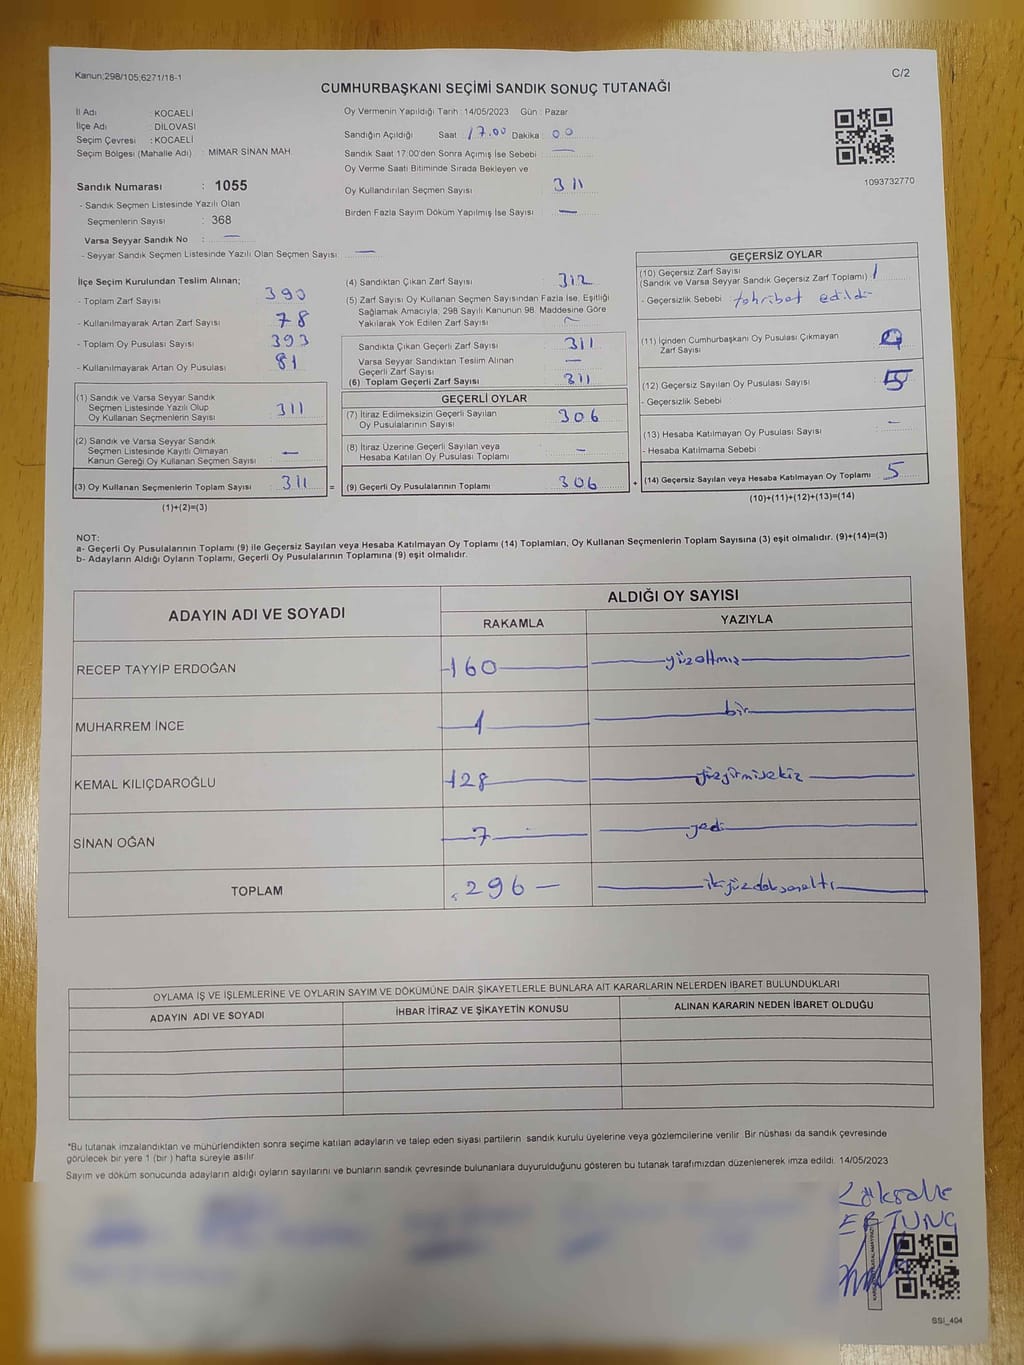 Kanun;298/105;6271/18-1
C/2
CUMHURBAŞKANI SEÇİMİ SANDIK SONUÇ TUTANAĞI
İl Adı : KOCAELİ
İlçe Adı : DİLOVASI
Seçim Çevresi : KOCAELİ
Seçim Bölgesi (Mahalle Adı) : MİMAR SİNAN MAH.
Sandık Numarası : 1055
- Sandık Seçmen Listesinde Yazılı Olan
Seçmenlerin Sayısı : 368
Varsa Seyyar Sandık No : —
- Seyyar Sandık Seçmen Listesinde Yazılı Olan Seçmen Sayısı : —
Oy Vermenin Yapıldığı Tarih : 14/05/2023 Gün : Pazar
Sandığın Açıldığı Saat 17.00 Dakika : 00
Sandık Saat 17:00'den Sonra Açımış İse Sebebi : —
Oy Verme Saati Bitiminde Sırada Bekleyen ve
Oy Kullandırılan Seçmen Sayısı : 311
Birden Fazla Sayım Döküm Yapılmış İse Sayısı : —
1093732770
İlçe Seçim Kurulundan Teslim Alınan;
- Toplam Zarf Sayısı : 390
- Kullanılmayarak Artan Zarf Sayısı : 78
- Toplam Oy Pusulası Sayısı : 393
- Kullanılmayarak Artan Oy Pusulası : 81
(1) Sandık ve Varsa Seyyar Sandık
Seçmen Listesinde Yazılı Olup
Oy Kullanan Seçmenlerin Sayısı : 311
(2) Sandık ve Varsa Seyyar Sandık
Seçmen Listesinde Kayıtlı Olmayan
Kanun Gereği Oy Kullanan Seçmen Sayısı : —
(3) Oy Kullanan Seçmenlerin Toplam Sayısı : 311 =
(1)+(2)=(3)
(4) Sandıktan Çıkan Zarf Sayısı : 312
(5) Zarf Sayısı Oy Kullanan Seçmen Sayısından Fazla İse, Eşitliği
Sağlamak Amacıyla; 298 Sayılı Kanunun 98. Maddesine Göre
Yakılarak Yok Edilen Zarf Sayısı : ~
Sandıkta Çıkan Geçerli Zarf Sayısı : 311
Varsa Seyyar Sandıktan Teslim Alınan
Geçerli Zarf Sayısı : —
(6) Toplam Geçerli Zarf Sayısı : 311
GEÇERLİ OYLAR
(7) İtiraz Edilmeksizin Geçerli Sayılan
Oy Pusulalarının Sayısı : 306
(8) İtiraz Üzerine Geçerli Sayılan veya
Hesaba Katılan Oy Pusulası Toplamı : —
(9) Geçerli Oy Pusulalarının Toplamı : 306 +
GEÇERSİZ OYLAR
(10) Geçersiz Zarf Sayısı
(Sandık ve Varsa Seyyar Sandık Geçersiz Zarf Toplamı) : 1
- Geçersizlik Sebebi : tahribat edildi
(11) İçinden Cumhurbaşkanı Oy Pusulası Çıkmayan
Zarf Sayısı
(12) Geçersiz Sayılan Oy Pusulası Sayısı : 5
- Geçersizlik Sebebi :
(13) Hesaba Katılmayan Oy Pusulası Sayısı : —
- Hesaba Katılmama Sebebi
(14) Geçersiz Sayılan veya Hesaba Katılmayan Oy Toplamı : 5
(10)+(11)+(12)+(13)=(14)
NOT:
a- Geçerli Oy Pusulalarının Toplamı (9) ile Geçersiz Sayılan veya Hesaba Katılmayan Oy Toplamı (14) Toplamları, Oy Kullanan Seçmenlerin Toplam Sayısına (3) eşit olmalıdır. (9)+(14)=(3)
b- Adayların Aldığı Oyların Toplamı, Geçerli Oy Pusulalarının Toplamına (9) eşit olmalıdır.
ADAYIN ADI VE SOYADI ALDIĞI OY SAYISI
RAKAMLA YAZIYLA
RECEP TAYYİP ERDOĞAN 160 yüzaltmış
MUHARREM İNCE 1 bir
KEMAL KILIÇDAROĞLU 128 yüzyirmisekiz
SİNAN OĞAN 7 yedi
TOPLAM 296 ikiyüzdoksanaltı
OYLAMA İŞ VE İŞLEMLERİNE VE OYLARIN SAYIM VE DÖKÜMÜNE DAİR ŞİKAYETLERLE BUNLARA AİT KARARLARIN NELERDEN İBARET BULUNDUKLARI
ADAYIN ADI VE SOYADI İHBAR İTİRAZ VE ŞİKAYETİN KONUSU ALINAN KARARIN NEDEN İBARET OLDUĞU
*Bu tutanak imzalandıktan ve mühürlendikten sonra seçime katılan adayların ve talep eden siyasi partilerin sandık kurulu üyelerine veya gözlemcilerine verilir. Bir nüshası da sandık çevresinde
görülecek bir yere 1 (bir ) hafta süreyle asılır.
Sayım ve döküm sonucunda adayların aldığı oyların sayılarını ve bunların sandık çevresinde bulunanlara duyurulduğunu gösteren bu tutanak tarafımızdan düzenlenerek imza edildi. 14/05/2023
ERTUNG
SSI_404